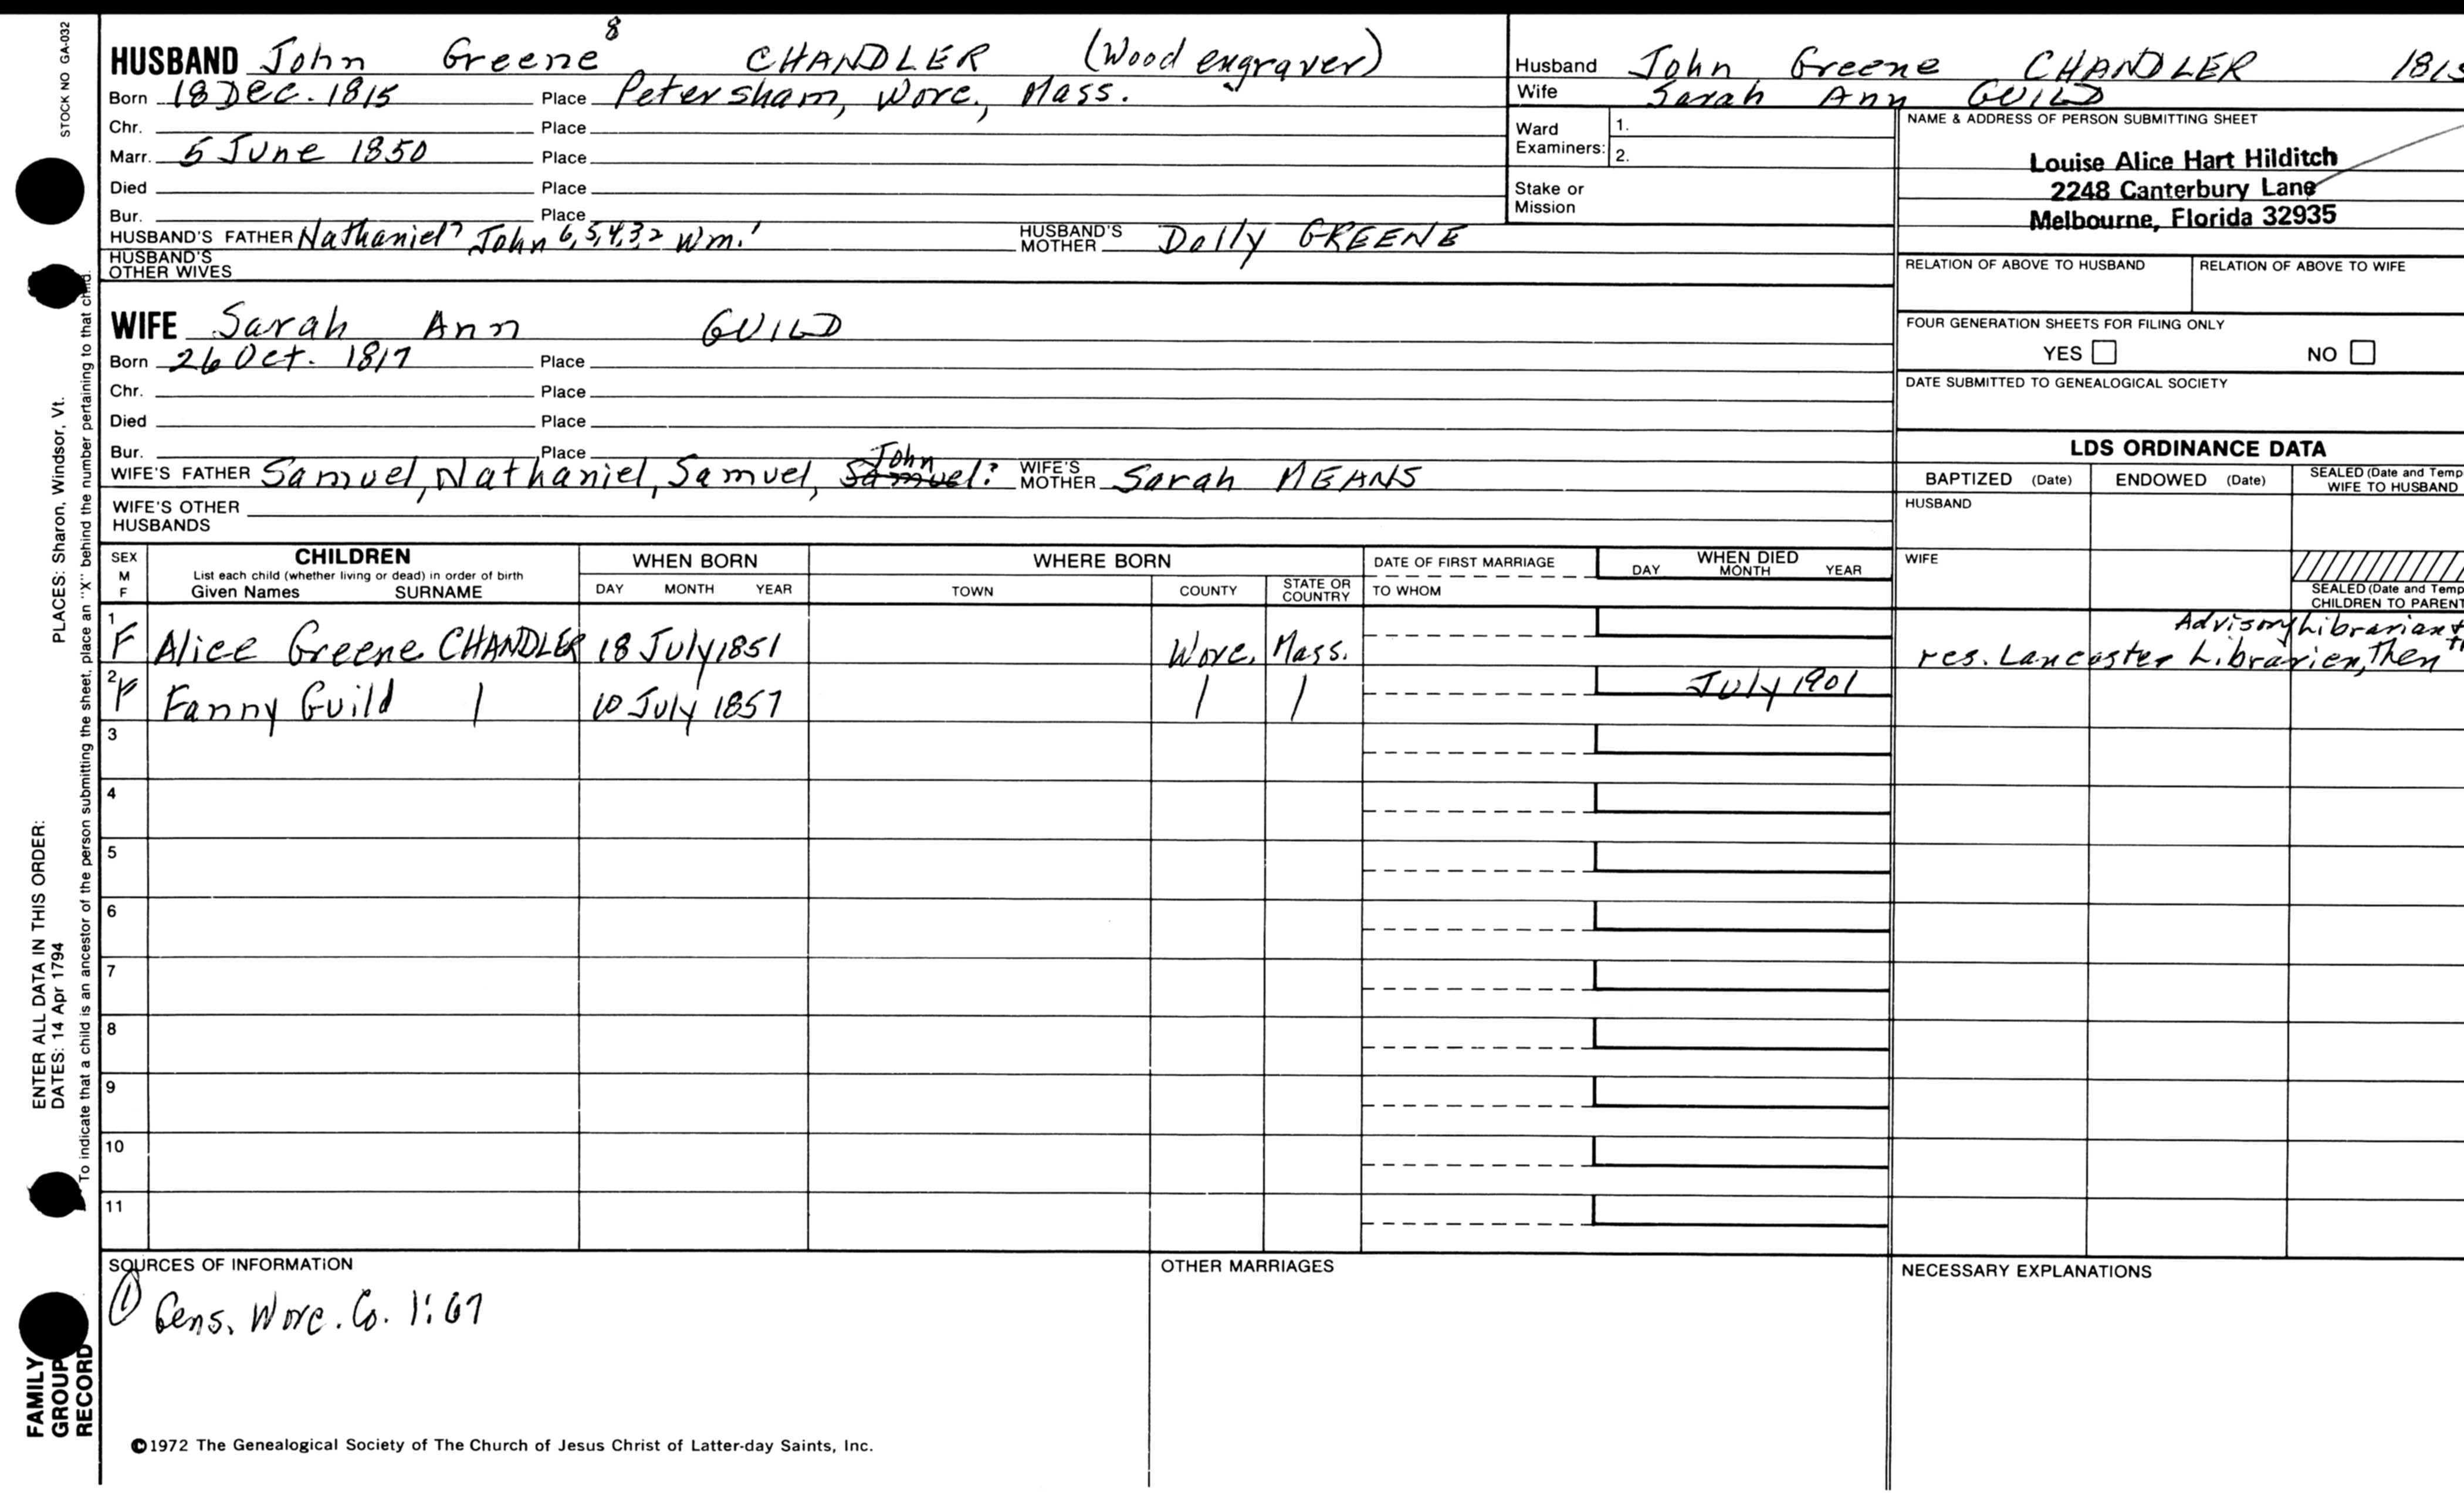 STOCK NO GA-032
HUSBAND John Greene 8 CHANDLER (Wood engraver)
Born 18 Dec. 1815 Place Petersham, Worc., Mass.
Chr. Place
Marr. 5 June 1850 Place
Died Place
Bur. Place
HUSBAND'S FATHER Nathaniel 7 John 6,5,4,3,2 Wm. 1 HUSBAND'S MOTHER Dolly GREENE
HUSBAND'S OTHER WIVES
Husband John Greene CHANDLER
Wife Sarah Ann GUILD
Ward Examiners: 1.
2.
Stake or Mission
NAME & ADDRESS OF PERSON SUBMITTING SHEET
Louise Alice Hart Hilditch
2248 Canterbury Lane
Melbourne, Florida 32935
RELATION OF ABOVE TO HUSBAND RELATION OF ABOVE TO WIFE
FOUR GENERATION SHEETS FOR FILING ONLY
YES NO
DATE SUBMITTED TO GENEALOGICAL SOCIETY
WIFE Sarah Ann GUILD
Born 26 Oct. 1817 Place
Chr. Place
Died Place
Bur. Place
WIFE'S FATHER Samuel, Nathaniel, Samuel, John Samuel: WIFE'S MOTHER Sarah MEANS
WIFE'S OTHER HUSBANDS
LDS ORDINANCE DATA
BAPTIZED (Date) ENDOWED (Date) SEALED (Date and Temp
WIFE TO HUSBAND
HUSBAND
WIFE
SEALED (Date and Temp
CHILDREN TO PARENT
SEX M F CHILDREN WHEN BORN WHERE BORN DATE OF FIRST MARRIAGE WHEN DIED
List each child (whether living or dead) in order of birth
Given Names SURNAME DAY MONTH YEAR TOWN COUNTY STATE OR COUNTRY TO WHOM DAY MONTH YEAR
1 F Alice Greene CHANDLER 18 July 1851 Worc. Mass.
Advisory Librarian +
res. Lancaster Librarien, Then
2 F Fanny Guild 10 July 1857 July 1901
3
4
5
6
7
8
9
10
11
SOURCES OF INFORMATION OTHER MARRIAGES NECESSARY EXPLANATIONS
1 Gens. Worc. Co. 1:67
©1972 The Genealogical Society of The Church of Jesus Christ of Latter-day Saints, Inc.
PLACES: Sharon, Windsor, Vt.
ENTER ALL DATA IN THIS ORDER:
DATES: 14 Apr 1794
To indicate that a child is an ancestor of the person submitting the sheet, place an "X" behind the number pertaining to that child.
FAMILY
GROUP
RECORD